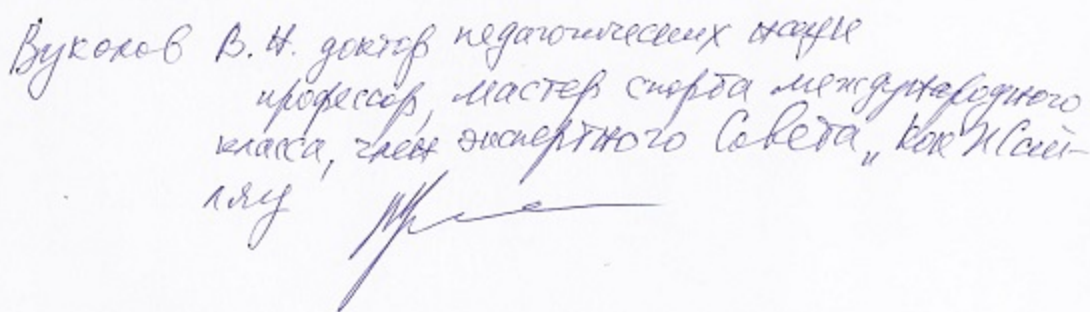 Вуколов В.Н. доктор педагогических наук
профессор, мастер спорта международного
класса, член экспертного Совета „Кок